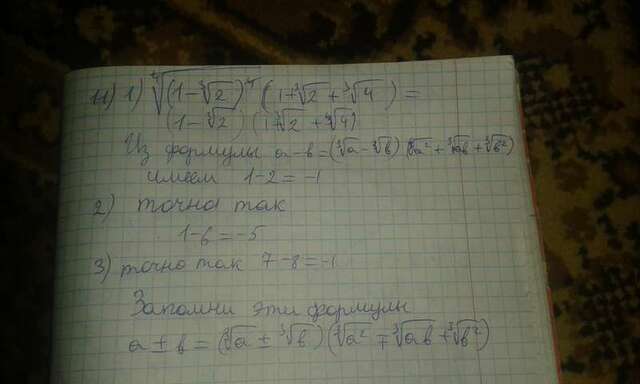 11) 1) ∜(1-∛2)⁴ (1+∛2+∛4) =
(1-∛2) (1+∛2+∛4)
Из формулы a-b=(∛a-∛b)(∛a²+∛ab+∛b²)
имеем 1-2=-1
2) точно так
1-6=-5
3) точно так 7-8=-1
Запомни эти формулы
a±b=(∛a±∛b)(∛a²∓∛ab+∛b²)